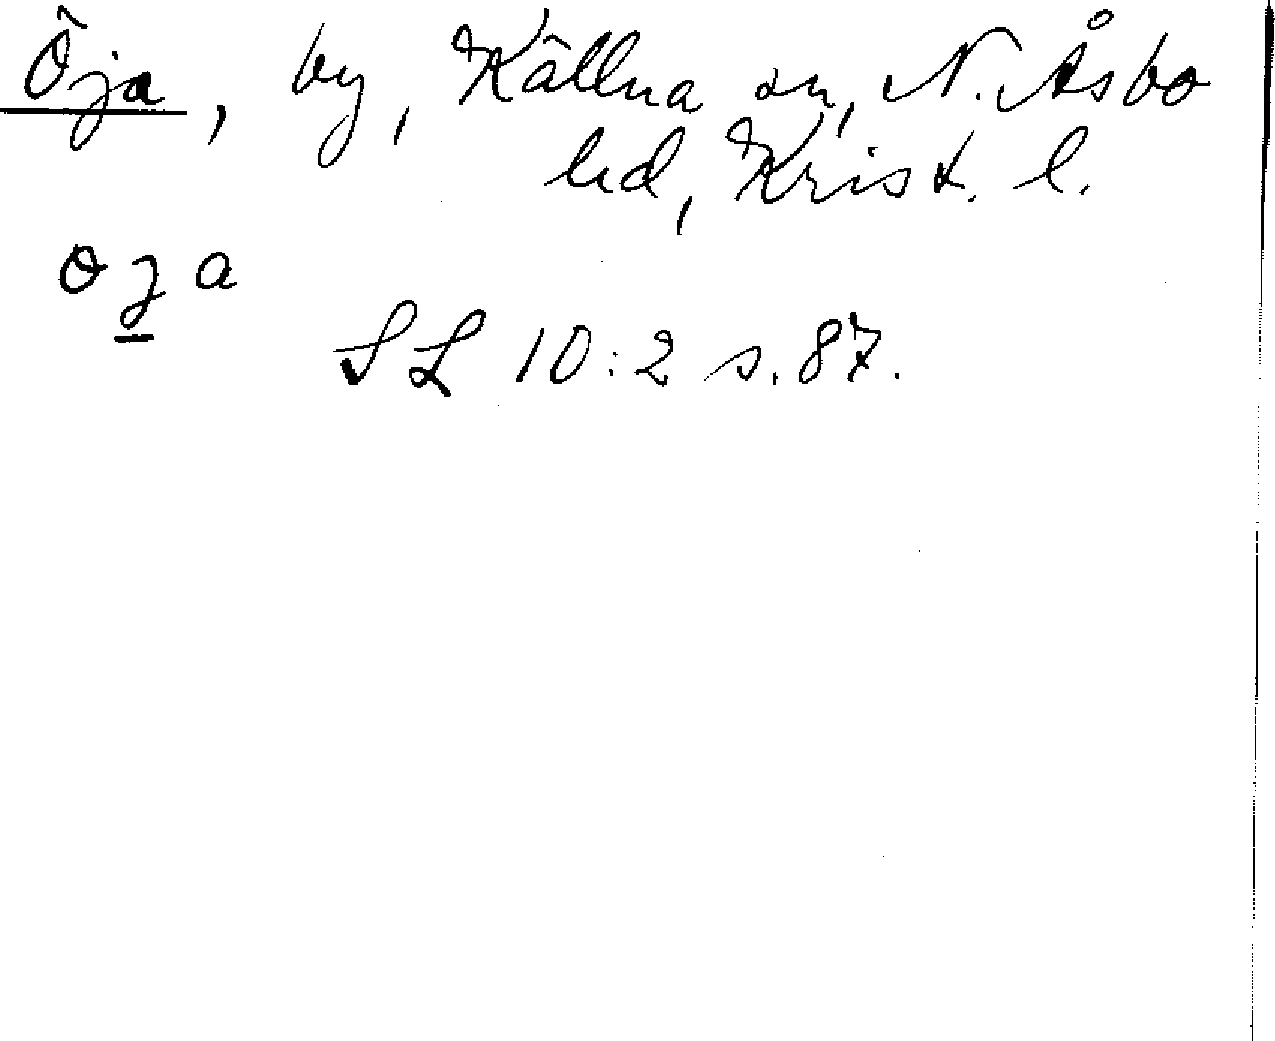 Öja, by, Källna sn, N. Åsbo
hd, Krist. l.
ꙩȷa
SL 10:2 s. 87.